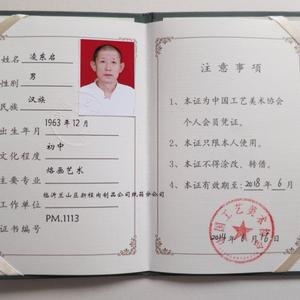 姓名 凌东启
性别 男
民族 汉族
出生年月 1963年12月
文化程度 初中
主要专业 烙画艺术
工作单位 临沂兰山区新程肉制品公司纸箱分公司
证书编号 PM.1113
注意事项
1、本证为中国工艺美术协会
个人会员凭证。
2、本证只限本人使用。
3、本证不得涂改、转借。
4、本证有效期至：2018年6月
中国工艺美术协会
2014年6月16日